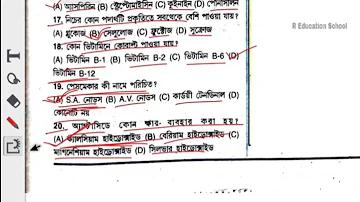 (A) অ্যাসপিরিন (B) স্ট্রেপ্টোমাইসিন (C) কুইনাইন (D) পেনিসিলিন
17. নিচের কোন পদার্থটি প্রকৃতিতে সবথেকে বেশি পাওয়া যায়?
(A) গ্লুকোজ (B) সেলুলোজ (C) ফ্রুক্টোজ (D) সুক্রোজ
18. কোন ভিটামিনে কোবাল্ট পাওয়া যায়?
(A) ভিটামিন B-1 (B) ভিটামিন B-2 (C) ভিটামিন B-6 (D)
ভিটামিন B-12
19. পেসমেকার কী নামে পরিচিত?
(A) S.A. নোডস (B) A.V. নোডস (C) কার্ডরী টেনডিনাল (D)
কোনোটি নয়
20. অ্যান্টাসিডে কোন ক্ষার ব্যবহার করা হয়?
(A) ক্যালসিয়াম হাইড্রোক্সাইড (B) বেরিয়াম হাইড্রোক্সাইড (C)
ম্যাগনেশিয়াম হাইড্রোক্সাইড (D) সিলভার হাইড্রোক্সাইড
R Education School